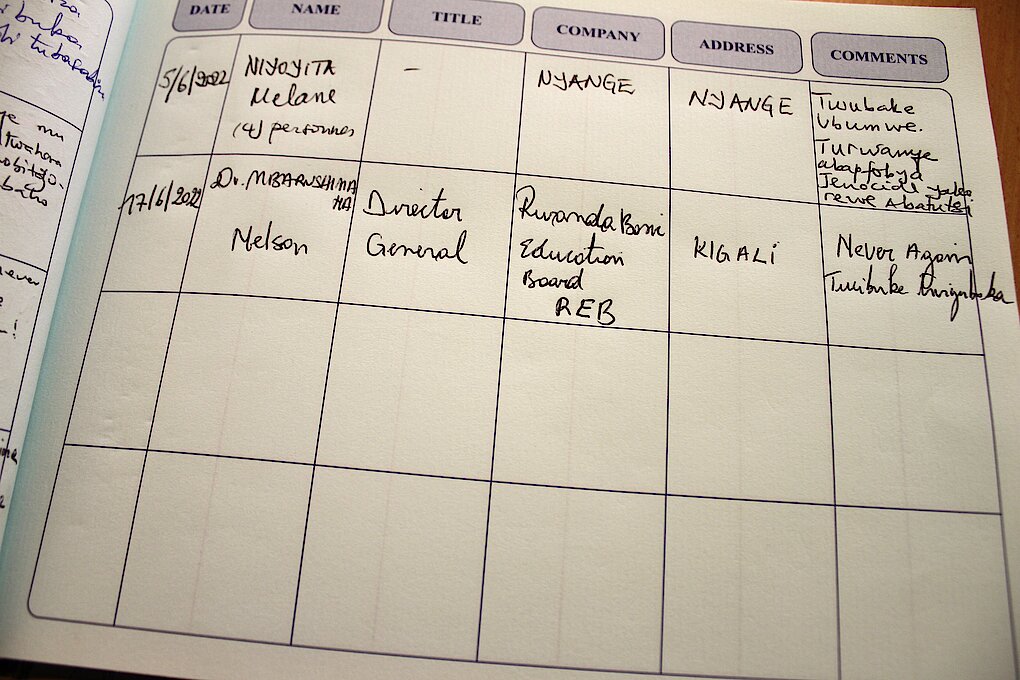 DATE NAME TITLE COMPANY ADDRESS COMMENTS
5/6/2022
NIYOYITA
Melane
(4) personnes
-
NYANGE
NYANGE
Twubake
Ubumwe.
Turwanye
abapfobya
Jenocide
rewe Abatutsi
17/6/2022
Dr. MBARUSHIMA
NA
Nelson
Director
General
Rwanda Basic
Education
Board
REB
KIGALI
Never Again
Twibuke Twiyubaka